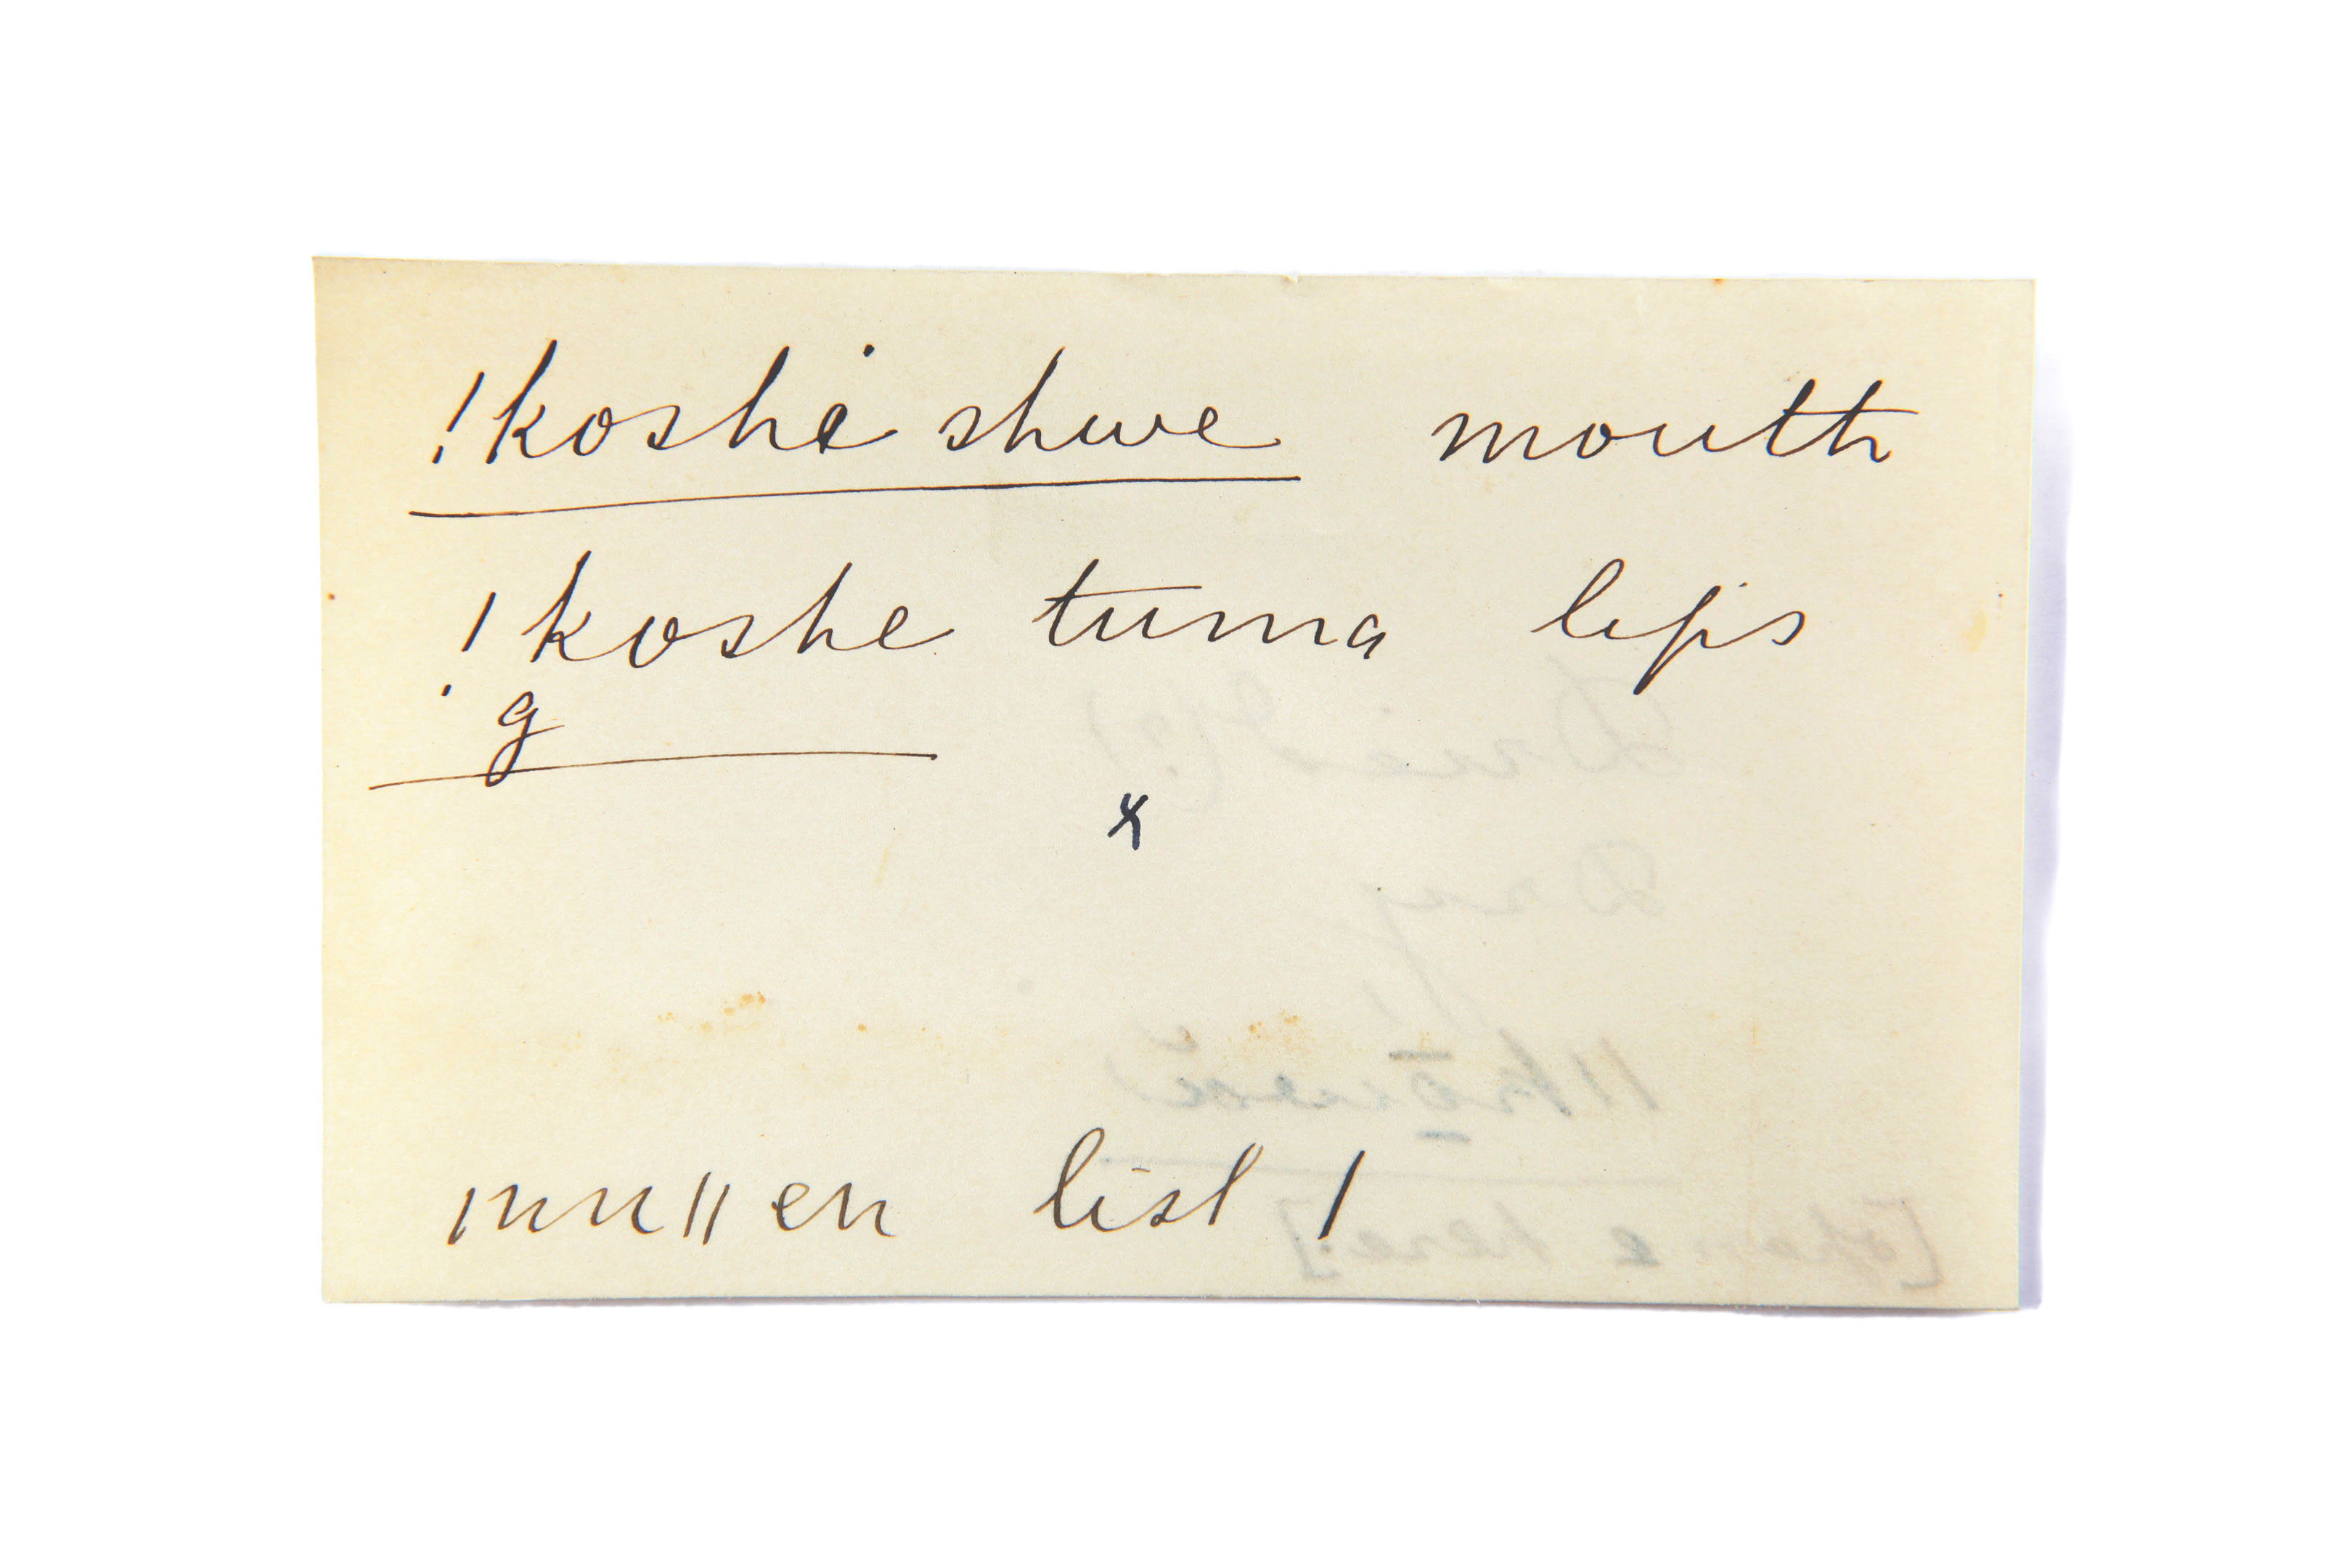 !koshe shwe mouth
!koshe tuma lips
g
x
ınu||en list !